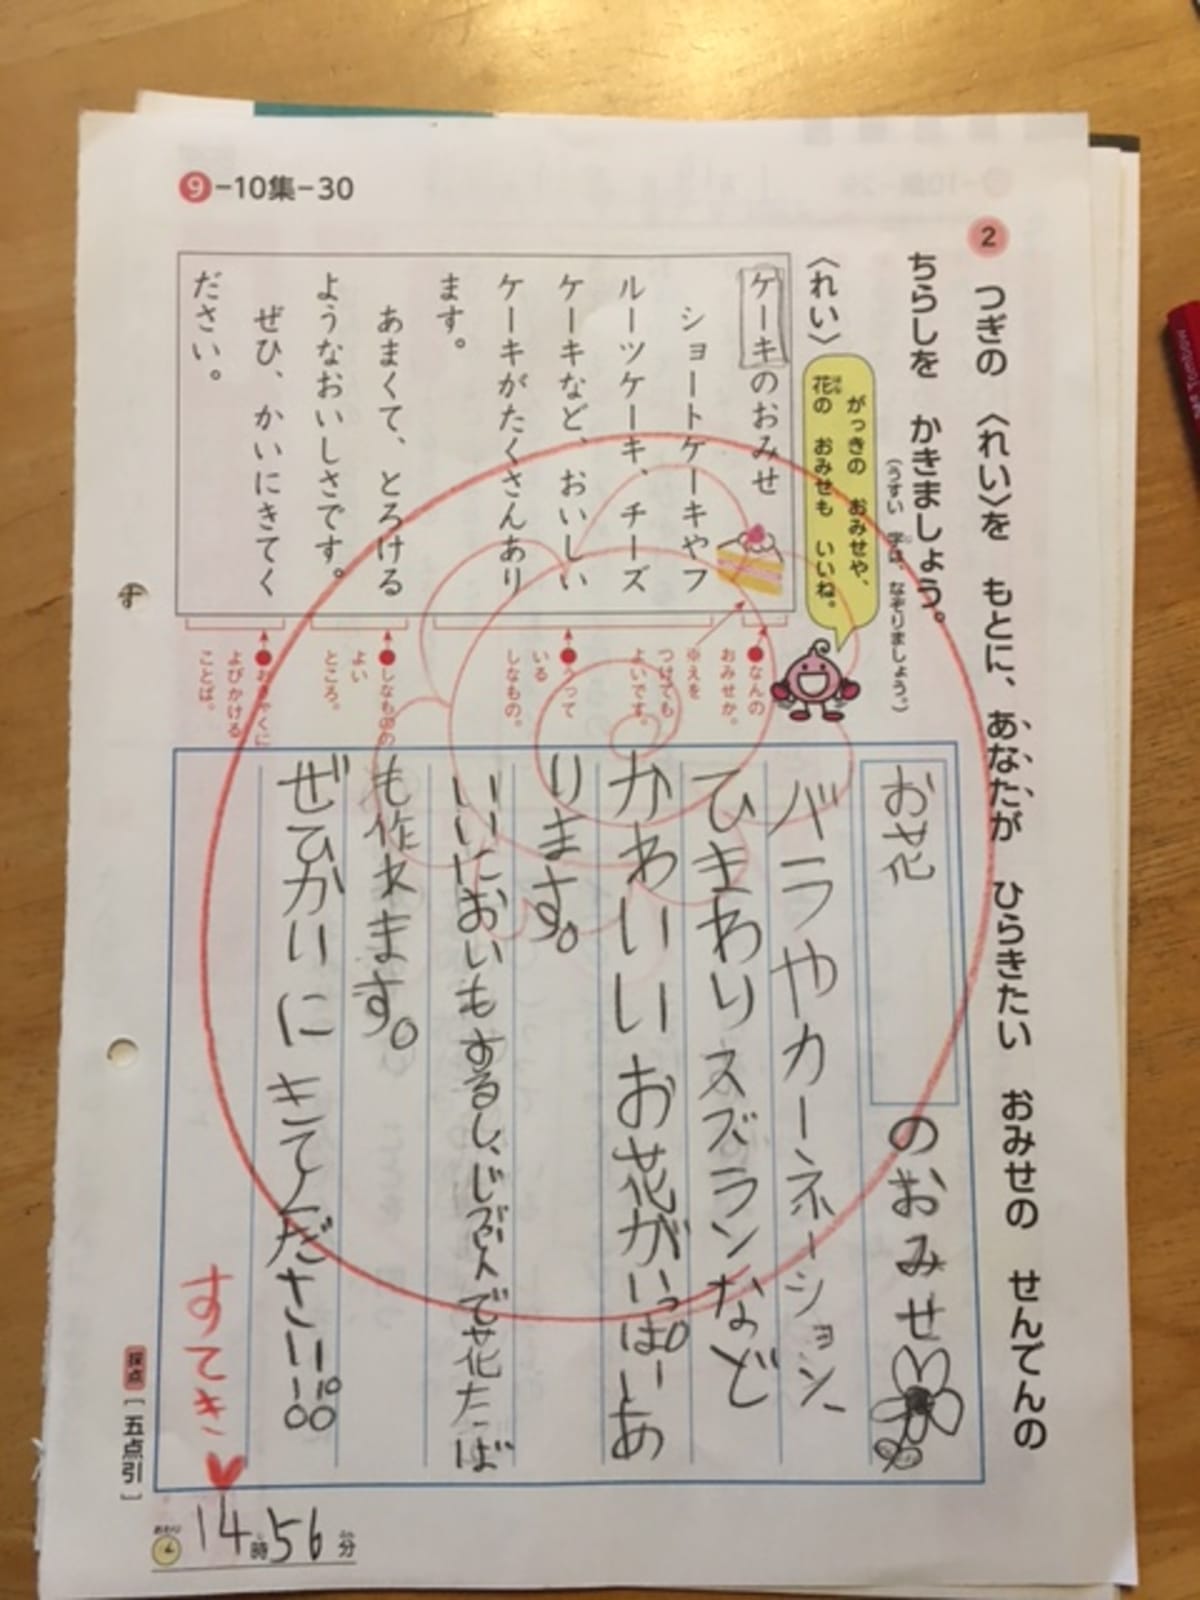 9-10集-30
2 つぎの 〈れい〉を もとに、あなたが ひらきたい おみせの せんでんの
ちらしを かきましょう。
(うすい 字は、なぞりましょう。)
〈れい〉
がっきの おみせや、
花の おみせも いいね。
はな
ケーキのおみせ
ショートケーキやフ
ルーツケーキ、チーズ
ケーキなど、おいしい
ケーキがたくさんあり
ます。
あまくて、とろける
ようなおいしさです。
ぜひ、かいにきてく
ださい。
●なんの
おみせか。
※えを
つけても
よいです。
●うって
いる
しなもの。
●しなものの
よい
ところ。
●おきゃくに
よびかける
ことば。
お花のおみせ
バラやカーネーション、
ひまわりスズランなど
かわいいお花がいっぱいあ
ります。
いいにおいもするし、じぶんで花たば
も作れます。
ぜひかいにきてください!!
すてき♥
採点[五点引]
おわり 14時56分